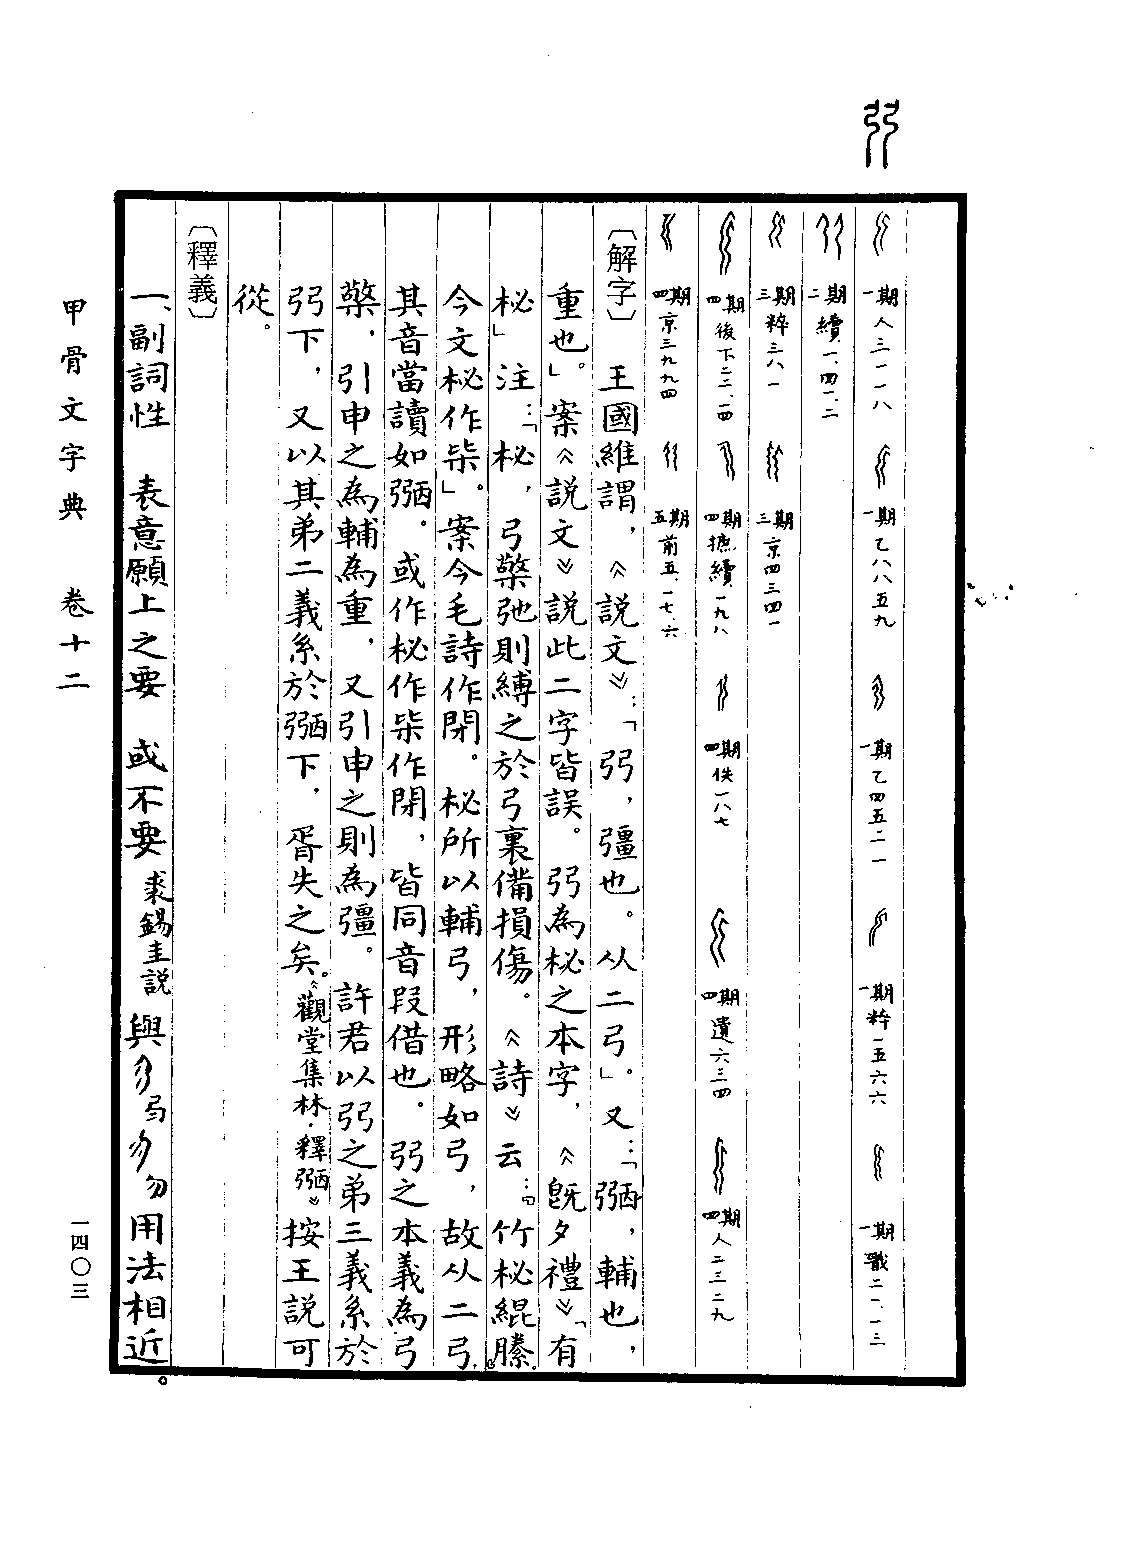 弜
一期人三一一八 一期乙八八五九 一期乙四五二一 一期粹一五六六 一期戬二一.一三
二期續一.四一.二
三期粹三八一 三期京四三四一
四期後下二二.一四 四期摭續一九八 四期佚一八七 四期遺六三四 四期人二三二九
四期京三九九四 五期前五.一七.六
〔解字〕 王國維謂，《說文》：「弜，彊也。从二弓」。又：「弼，輔也，
重也。」案《說文》說此二字皆誤。弜為柲之本字，《旣夕禮》「有
柲」注：「柲，弓檠弛則縛之於弓裏備損傷。《詩》云：『竹柲緄縢。』
今文柲作枈」。案今毛詩作閉。柲所以輔弓，形略如弓，故从二弓，
其音當讀如弼。或作柲作枈作閉，皆同音叚借也。弜之本義為弓
檠，引申之為輔為重，又引申之則為彊。許君以弜之第三義系於
弜下，又以其弟二義系於弼下，胥失之矣。《觀堂集林·釋弼》按王說可
從。
〔釋義〕
一、副詞性 表意願上之要 或不要裘錫圭說與弓勿用法相近。
甲骨文字典 卷十二
一四〇三